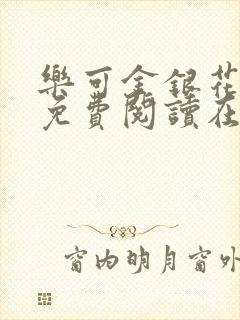 樂可金銀花
免費閱讀在
窗内明月窗外